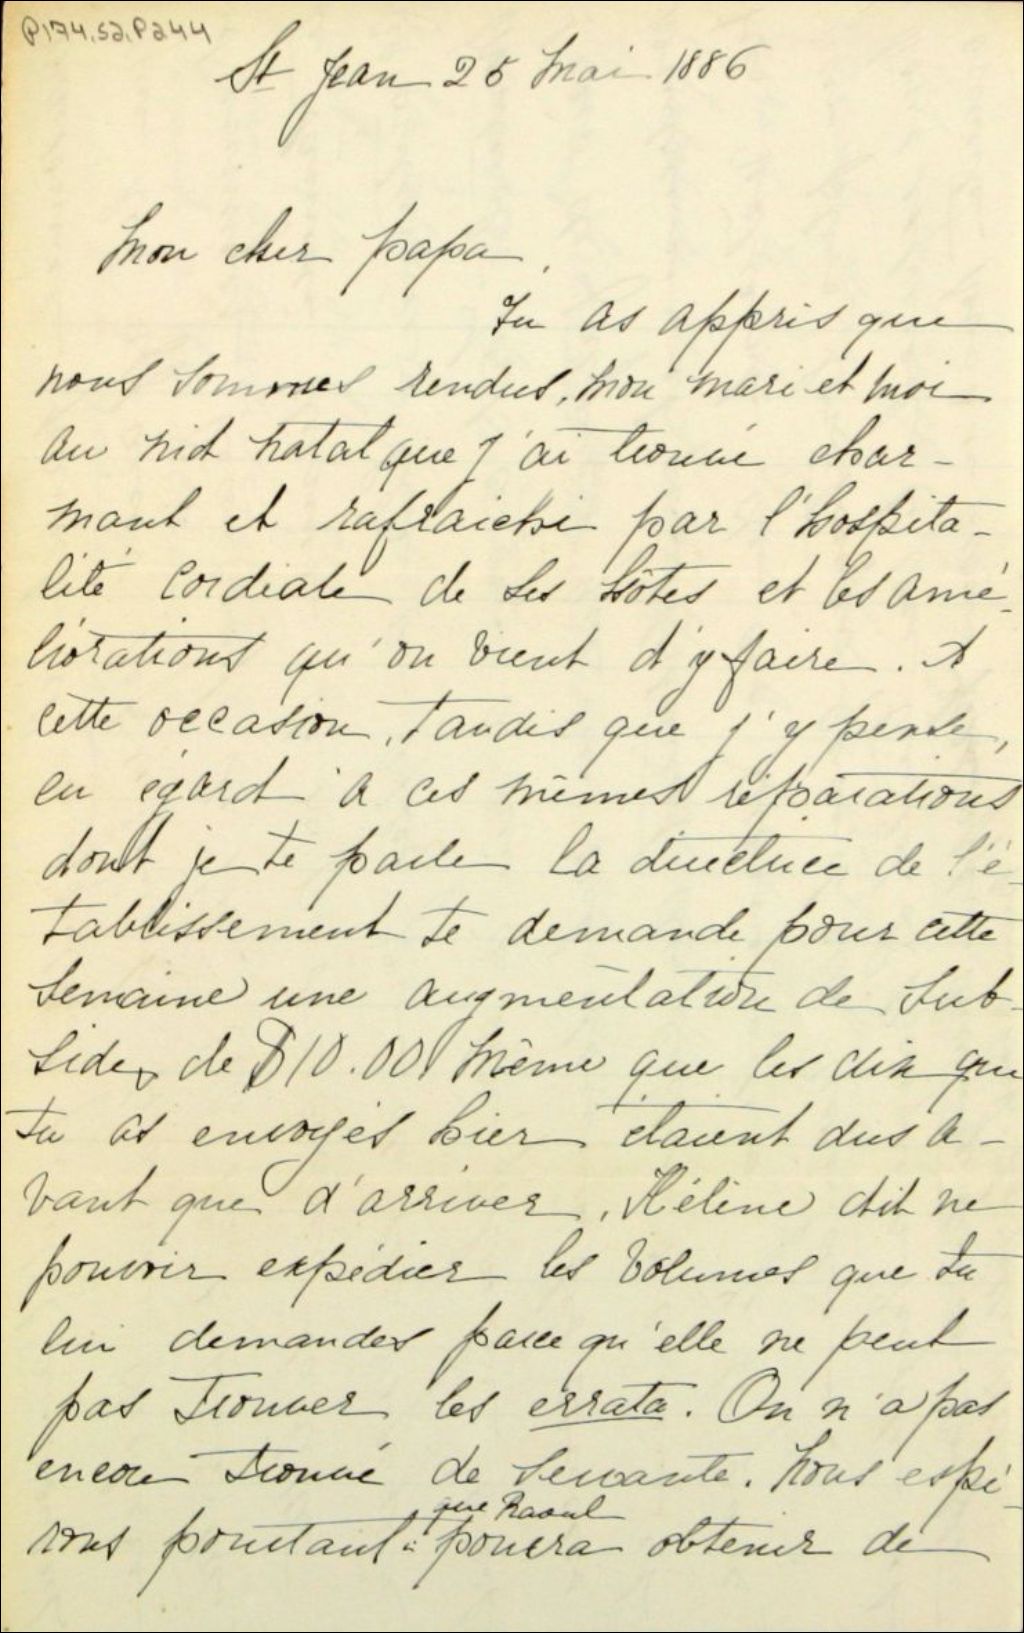 P174,S2,P244
St Jean 25 Mai 1886
Mon cher papa,
Tu as appris que
nous sommes rendus, mon mari et moi
au nid natal que j'ai trouvé char-
mant et rafraichi par l'hospita-
lité cordiale de ses hôtes et les amé-
liorations qu'on vient d'y faire. A
cette occasion, tandis que j'y pense,
eu égard à ces mêmes réparations
dont je te parle la directrice de l'é-
tablissement te demande pour cette
semaine une augmentation de sub-
sides de $10.00 même que les dix que
tu as envoyés hier étaient dus a-
vant que d'arriver. Hélène dit ne
pouvoir expédier les volumes que tu
lui demandes parce qu'elle ne peut
pas trouver les errata. On n'a pas
encore trouvé de servante. Nous espé-
que Raoul
rons pourtant pourra obtenir de